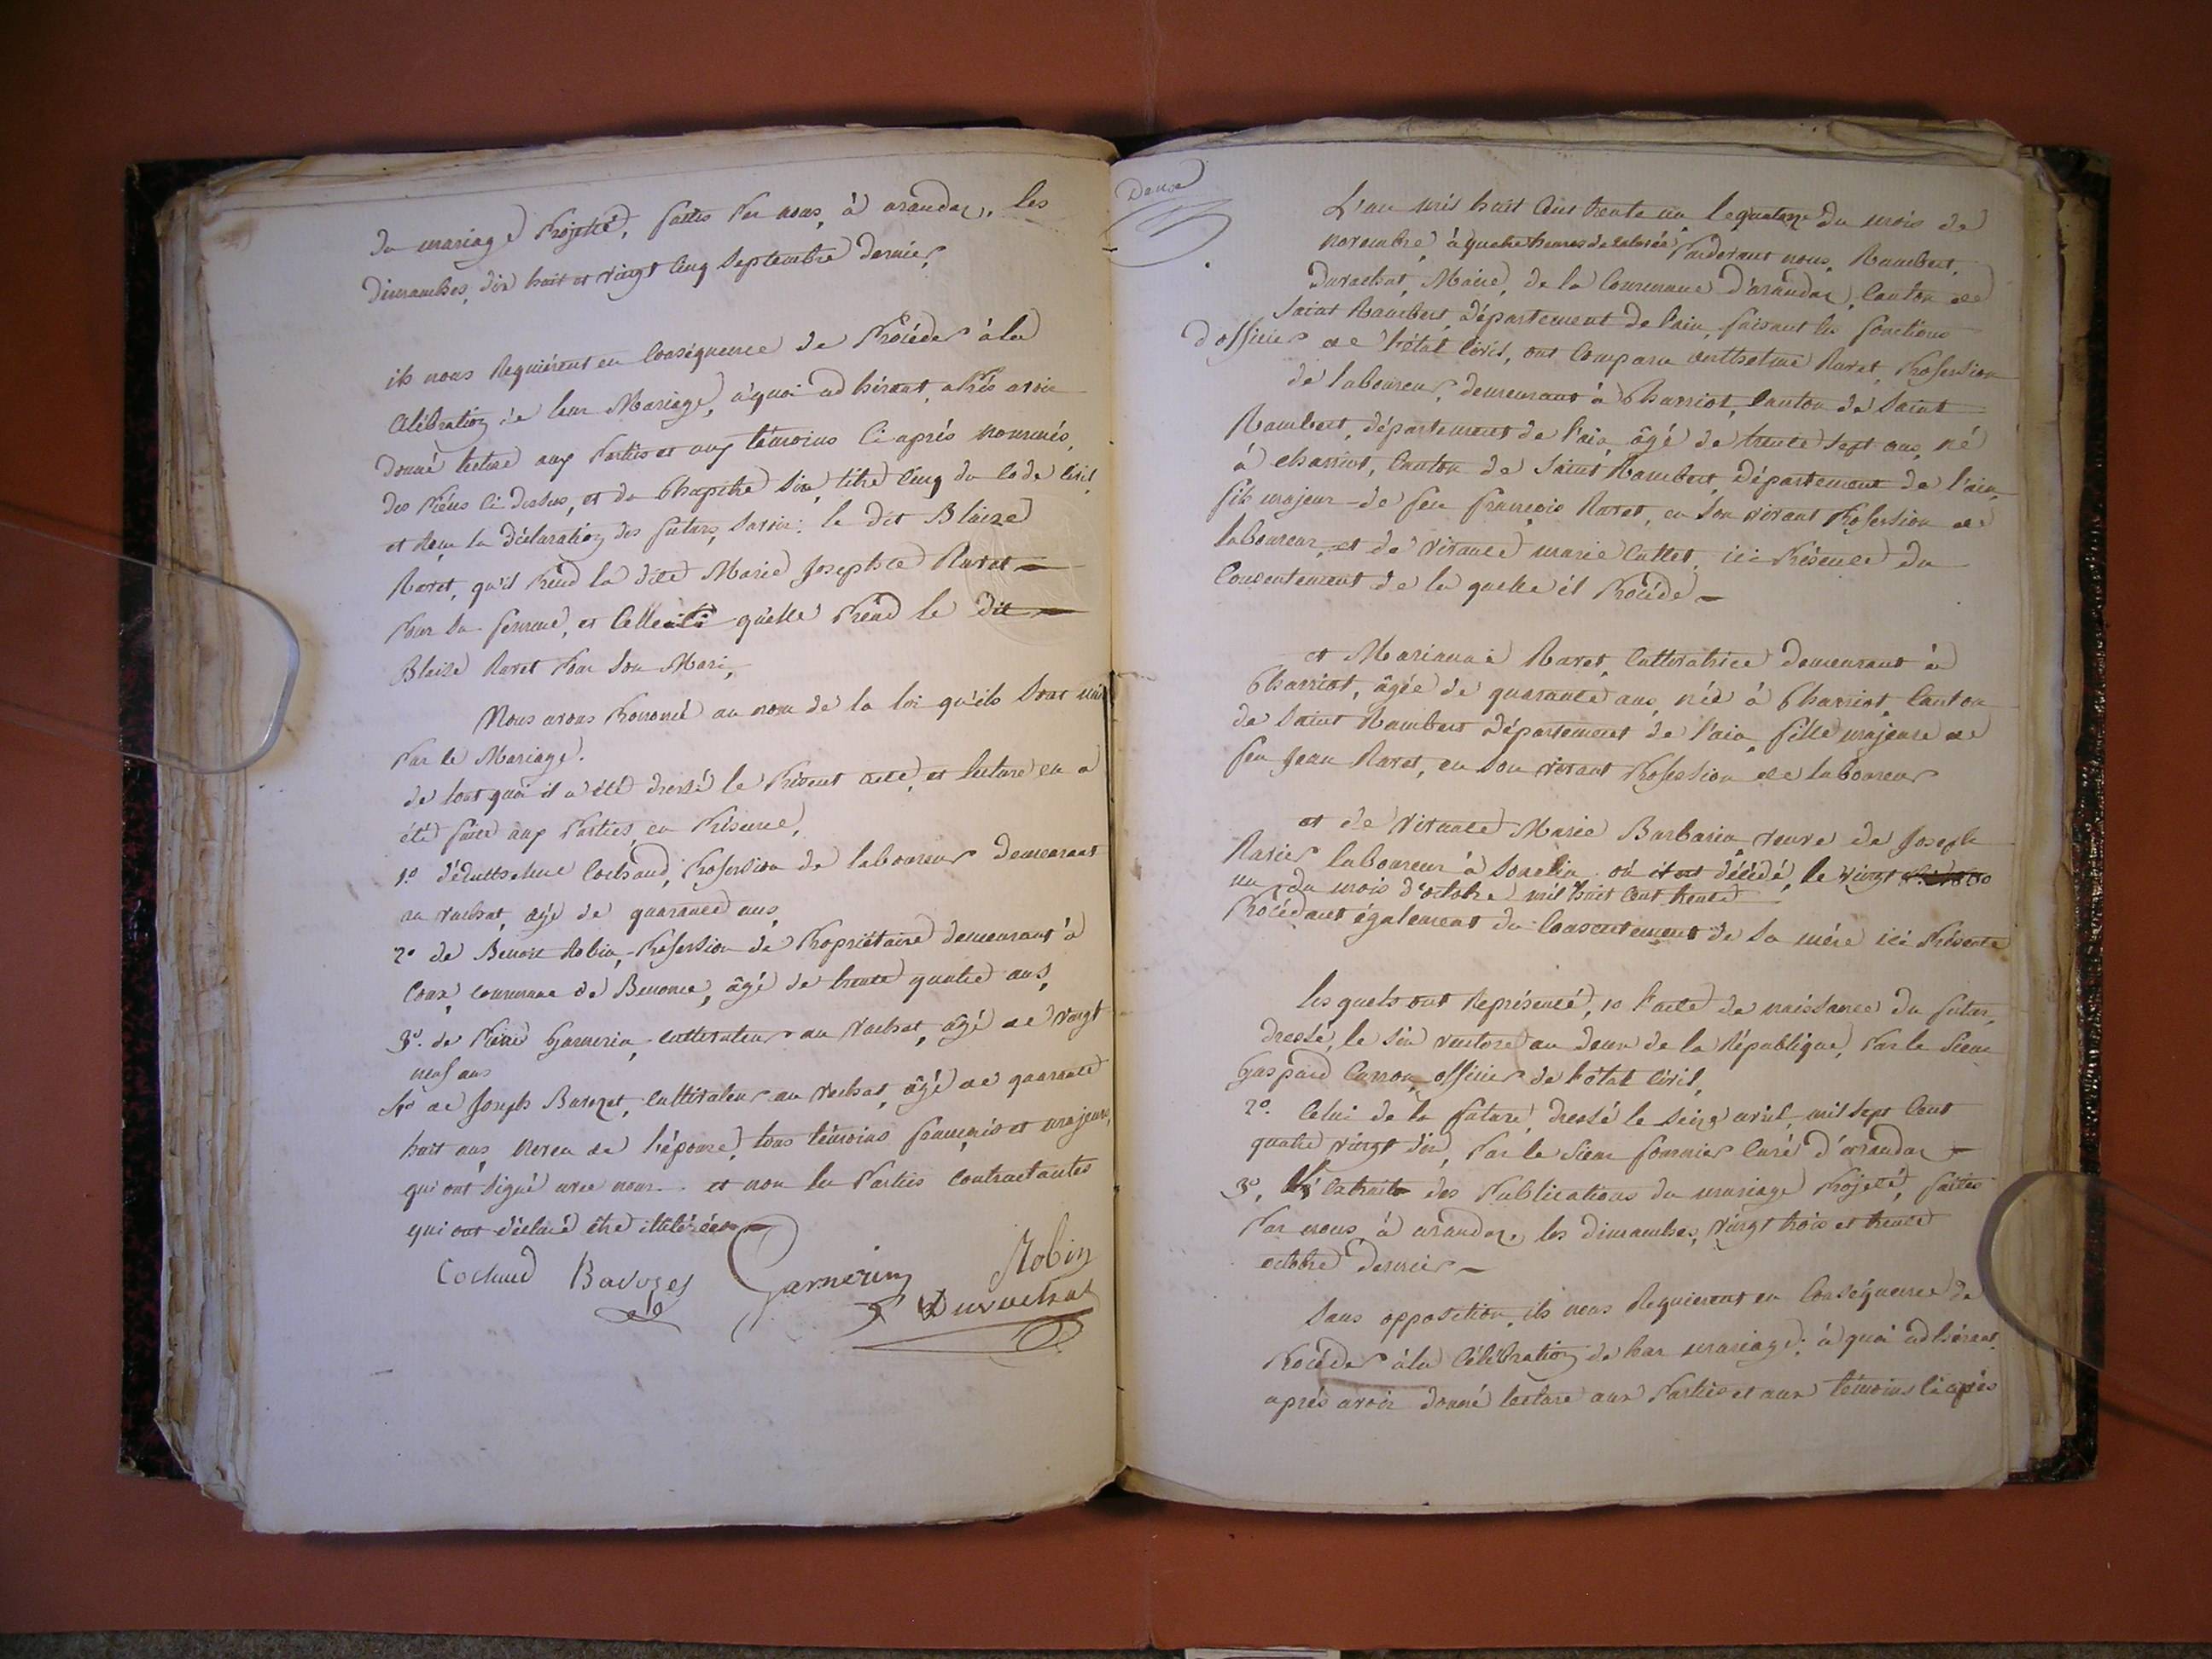 du mariage projetté, faites par nous, à arandaz, les
dimanches, dix huit et vingt cinq Septembre dernier,
ils nous Requièrent en Conséquence de Procéder à la
Célébration de leur Mariage, à quoi adhérant, après avoir
donné lecture aux Parties et aux témoins Ci après nommés,
des Pièces Ci dessus, et du Chapitre Six, titre Cinq du Code Civil
et Reçu la déclaration des futurs, Savoir: le dit Blaize
Ravet, qu'il Prend la dite Marie Josephte Ravet
Pour Sa femme, et Celle ici qu'elle Prend le dit
Blaize Ravet Pour Son Mari,
Nous avons Prononcé au nom de la loi qu'ils Sont unis
Par le Mariage.
de tout quoi il a été dressé le Présent acte, et lecture en a
été faite aux Parties, en Présence,
1º. Cochaud, Profession de laboureur demeurant
au vachat, agé de quarante ans,
2º de Benoit Robin, Profession de Propriétaire demeurant à
Commune de Benonce, âgé de trente quatre ans,
3º. de Pierre Garnerin, Cultivateur au vachat, âgé de vingt
neuf ans
4º de Joseph Cultivateur au vachat, âgé de quarante
huit ans, neveu de l'épouse, tous témoins français et majeurs,
qui ont Signé avec nous et non les Parties Contractantes
qui ont déclaré être illitérées
Cochaud Garnerin Robin
Duvachat
L'an mil huit Cent trente un, le quatorze du mois de
novembre, à quatre heures de Pardevant nous, Rambert,
Duvachat, Maire, de la Commune d'arandaz, Canton de
Saint Rambert, département de l'ain, faisant les fonctions
d'officier de l'état Civil, ont Comparu anthelme Ravet, Profession
de laboureur, demeurant à Charriot, Canton de Saint
Rambert, département de l'ain, âgé de trente Sept ans, né
à charriot, Canton de Saint Rambert, Département de l'ain,
fils majeur de feu françois Ravet, en Son vivant Profession de
laboureur, et de vivante marie Cuttet, ici Présence du
Consentement de la quelle il Procède
et Marianne Ravet, Cultivatrice demeurant à
Charriot, âgée de quarante ans, née à Charriot, Canton
de Saint Rambert département de l'ain, fille majeure de
feu Jean Ravet, en Son vivant Profession de laboureur
et de vivante Marie Barbarin, veuve de Joseph
laboureur à Souclin où il est décédé, le vingt
un du mois d'octobre mil huit Cent trente
Procédant également du Consentement de Sa mère ici Présente
les quels ont Représenté, 1º l'acte de naissance du futur,
dressé, le Six ventose an deux de la République, Par le Sieur
Gaspard officier de l'état Civil,
2º. Celui de la future, dressé le Seize avril, mil Sept Cent
quatre vingt dix, Par le Sieur fournier Curé d'arandaz
3º, l'extrait des Publications du mariage Projeté, faites
Par nous, à arandaz, les dimanches, vingt trois et trente
octobre dernier
Sans opposition, ils nous Requièrent en Conséquence de
Procéder à la Célébration de leur mariage; à quoi adhérant,
après avoir donné lecture aux Parties et aux témoins Ci après